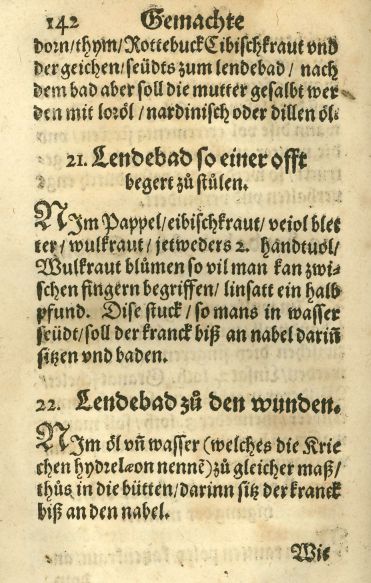 142 Gemachte
dorn/thym/Rottebuck Cibischkraut vnd
dergeichen/seüdts zum lendebad/ nach
dem bad aber soll die mutter gesalbt wer
den mit loröl/ nardinisch oder dillen öl.
21. Lendebad so einer offt
begert zů stülen.
NJm Pappel/eibischkraut/ veiol blet
ter/ wulkraut/ jetweders 2. handtuöl/
Wulkraut blůmen so vil man kan zwi-
schen fingern begriffen/ linsatt ein halb
pfund. Dise stuck/ so mans in wasser
seüdt/soll der kranck biß an nabel dariñ
sitzen vnd baden.
22. Lendebad zů den wunden.
NJm öl vñ wasser (welches die Krie
chen hydrelæon nennẽ) zů gleicher maß/
thůs in die bütten/darinn sitz der kranck
biß an den nabel.
Wie